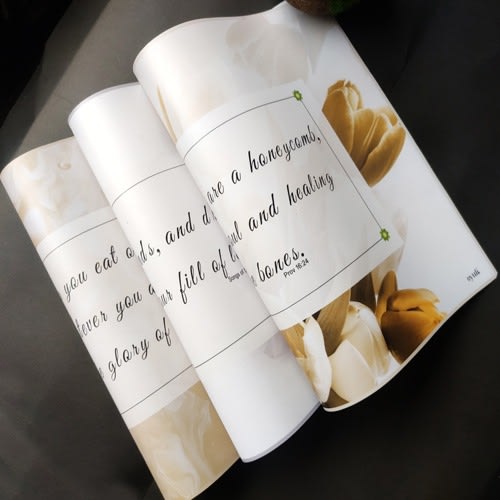 you eat o
ever you a
glory of
ds, and d
ur fill of
Songs of
are a honeycomb,
ul and healing
bones.
Prov 16:24